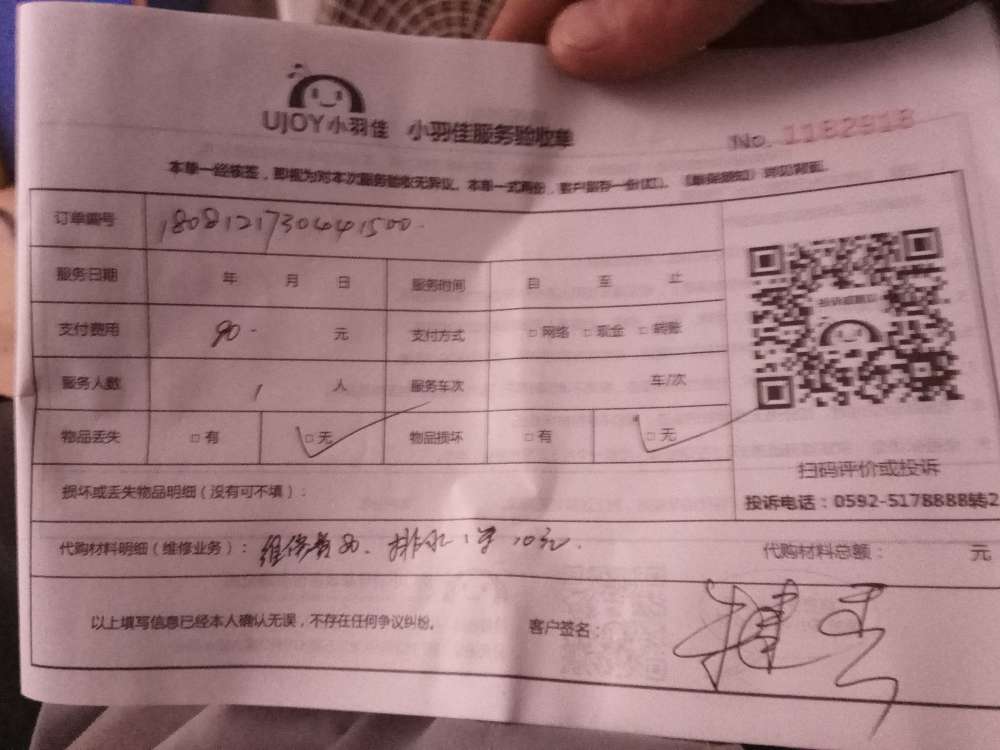 UJOY小羽佳 小羽佳服务验收单
No. 1182918
本单一经核签，即视为对本次服务验收无异议。本单一式两份，客户留存一份(红)。
订单编号 1808121730441500
服务日期 年 月 日 服务时间 自 至 止
支付费用 90 元 支付方式 □ 网络 □ 现金 □ 转账
服务人数 1 人 服务车次 车/次
物品丢失 □ 有 □ 无 物品损坏 □ 有 □ 无
扫码评价或投诉
损坏或丢失物品明细（没有可不填）：
投诉电话：0592-5178888转2
代购材料明细（维修业务）： 维修 排水 10元 代购材料总额： 元
以上填写信息已经本人确认无误，不存在任何争议纠纷。 客户签名：